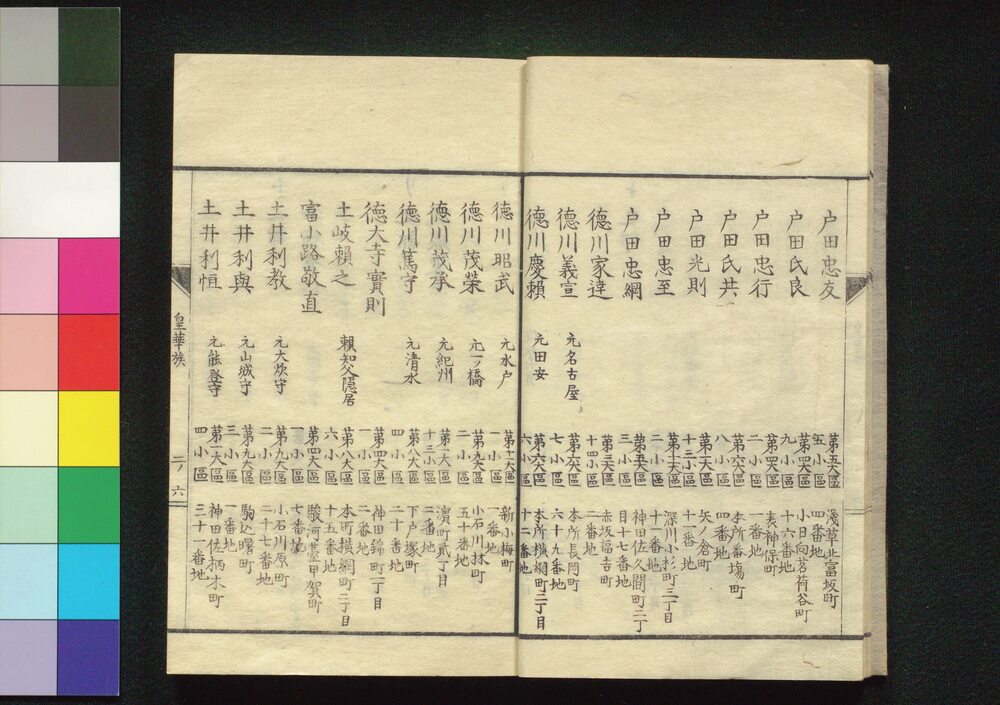 戸田忠友 第五大區 五小區 淺草北富坂町 四番地
戸田氏良 第四大區 九小區 小日向茗荷谷町 十六番地
戸田忠行 第四大區 二小區 表神保町 一番地
戸田氏共 第六大區 八小區 本所番場町 四番地
戸田光則 第一大區 十三小區 矢ノ倉町 十一番地
戸田忠至 第十一大區 二小區 深川小松町三丁目 十一番地
戸田忠綱 第五大區 三小區 神田佐久間町二丁目 十七番地
徳川家達 第三大區 十四小區 赤坂福吉町 二番地
徳川義宣 元名古屋 第六大區 七小區 本所長岡町 六十九番地
徳川慶賴 元田安 第六大區 六小區 本所横網町二丁目 十二番地
徳川昭武 元水戸 第十一大區 一小區 新小梅町 一番地
徳川茂榮 元一ツ橋 第九大區 二小區 小石川林町 五十番地
徳川茂承 元紀州 第一大區 十三小區 濱町貳丁目 二番地
徳川篤守 元清水 第八大區 四小區 下戸塚町 二十番地
徳大寺實則 第四大區 一小區 神田錦町一丁目 二番地
土岐賴之 賴知父隱居 第八大區 六小區 本町横網町二丁目 十五番地
富小路敬直 第四大區 一小區 駿河臺甲賀町 七番地
土井利教 元大炊守 第九大區 二小區 小石川原町 二十七番地
土井利與 元山城守 第九大區 三小區 駒込曙町 一番地
土井利恒 元能登守 第一大區 四小區 神田佐柄木町 三十一番地
皇華族
二ノ六